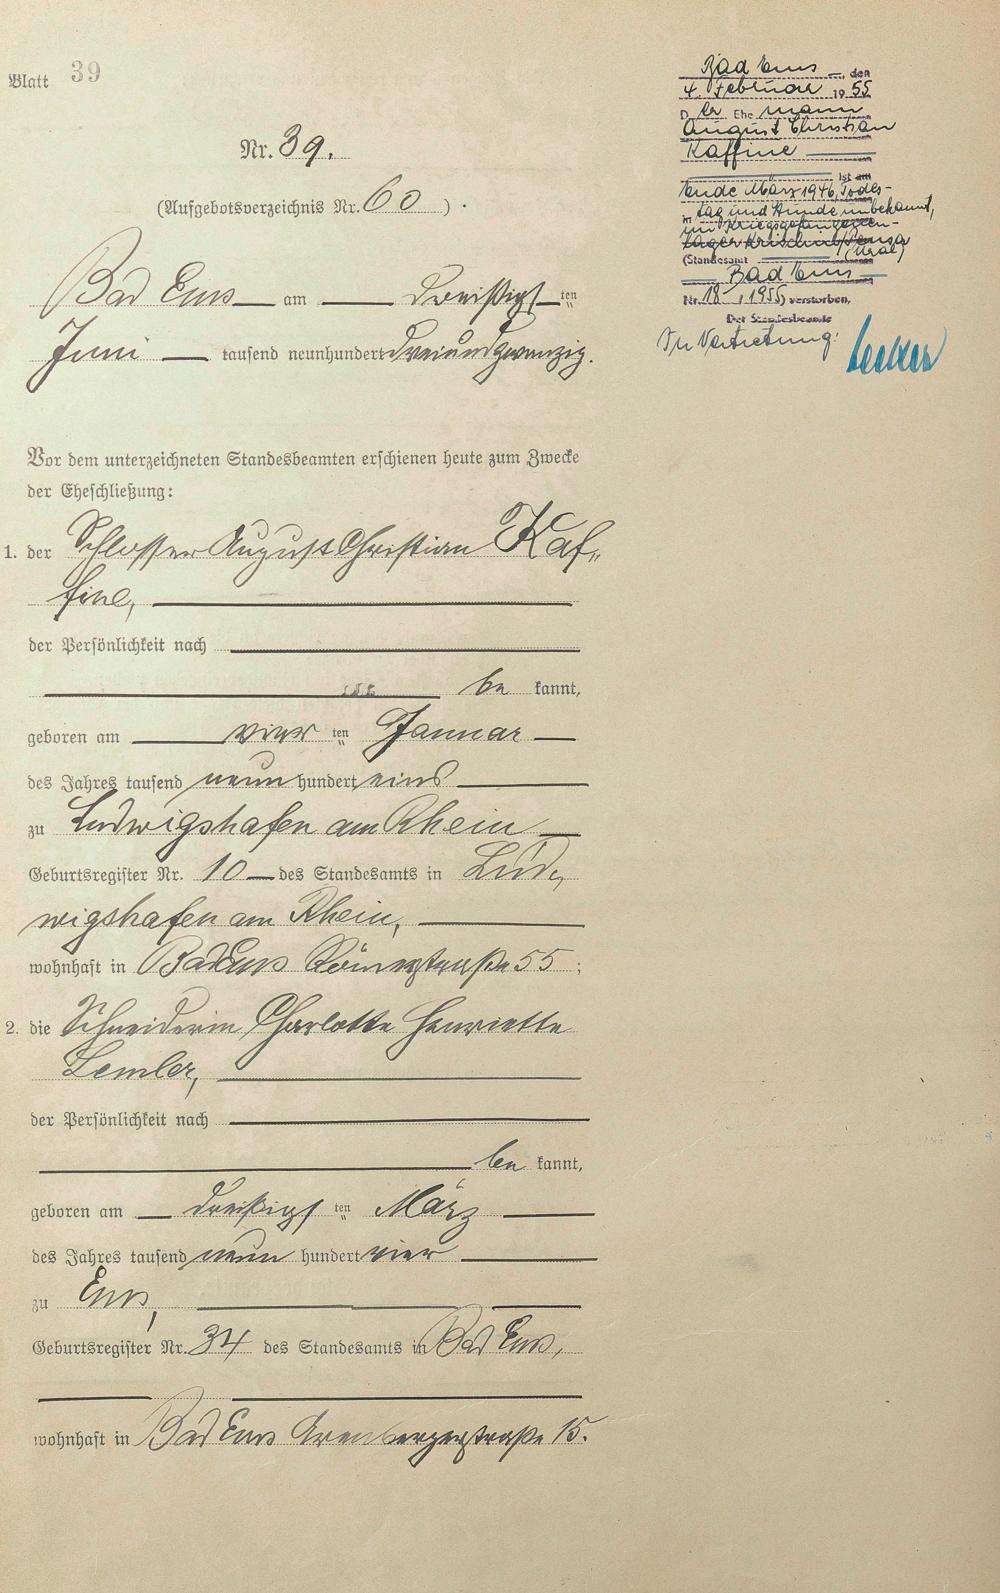 Blatt 39
Nr. 39.
(Aufgebotsverzeichnis Nr. 60).
Bad Ems am dreißigsten
Juni tausend neunhundert dreiundzwanzig.
Vor dem unterzeichneten Standesbeamten erschienen heute zum Zwecke
der Eheschließung:
1. der Schlosser August Christian Kaf-
fine,
der Persönlichkeit nach
be kannt,
geboren am vierten Januar
des Jahres tausend neun hundert eins
zu Ludwigshafen am Rhein
Geburtsregister Nr. 10 des Standesamts in Lud-
wigshafen am Rhein,
wohnhaft in Bad Ems Römerstraße 55;
2. die Schneiderin Charlotte Henriette
Lemler,
der Persönlichkeit nach
be kannt,
geboren am dreißigsten März
des Jahres tausend neun hundert vier
zu Ems,
Geburtsregister Nr. 34 des Standesamts in Bad Ems,
wohnhaft in Bad Ems Arenbergerstraße 15.
Bad Ems, den
4. Februar 1955
Der Ehemann
August Christian
Kaffine
ist am
Ende März 1946, Todes-
in tag und Stunde unbekannt,
im Kriegsgefangenen-
lager /Pensa
(Ural)
(Standesamt
Bad Ems
Nr. 18, 1955) verstorben.
Der Standesbeamte
In Vertretung: